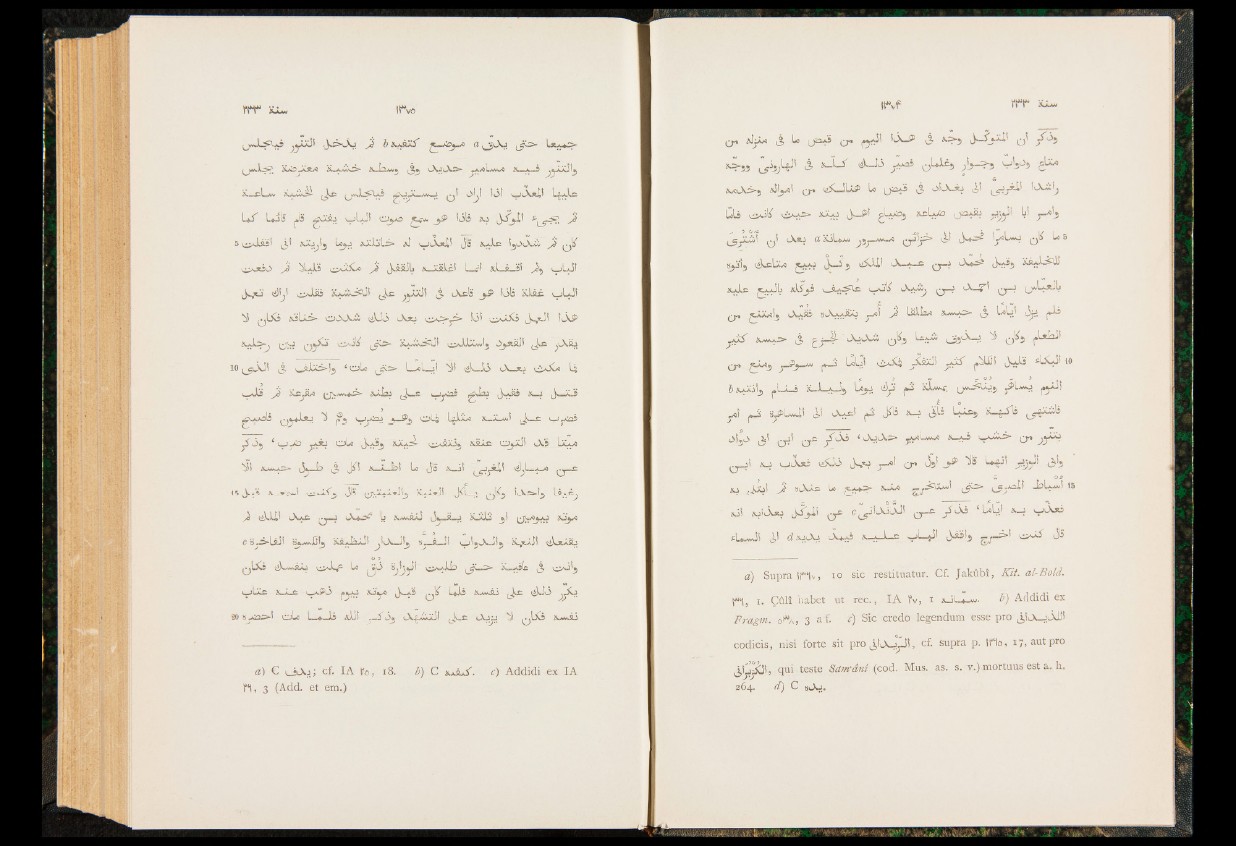 سنة ٢٣٣ ١٣٧٤
وذكر ان المتوكّل وجّه فى هذا اليوم من قبض ما فى منزله من
متاع ودوابّ وجوار وغلمان فصيّر ذلك كلّه فى الهارونىّ ووجّه
راشدا المغربىّ الى بغداد فى قبض ما هنالك من امواله وخدمه
وامر ابا الوزير بقبض ضياعه وضياع اهل بيته حيث كانت فامّا
5 ما كان بسامرّا فحمل الى خزائن مسرور سمانة a بعد ان اشترى
للخليفة وقيل لمحمّد بن عبد الملك وكّل ببيع متاعك واتوه
بالعبّاس بن احمد بن رشيد كاتب عجيف فوكّله بالبيع عليه
فلم يزل ايّاما فى حبسه مطلقا ثم أمر بتقييده فقيّد وامتنع من
الطعام وكان لا يذوق شيئا وكان شديد الجزع فى حبسه كثير
10 البكاء قليل الكلام كثير التفكّر فمكث ايّاما ثم سوهر ومنع من
النوم يساهر وينخس بمسلّة ثم ترك يوما وليلة فنام وانتبه b
فاشتهى فاكهة وعنبا فأتى به فاكل ثم اعيد الى المساهرة ثم امر
بتنّور من خشب فيه مسامير حديد، فذكر عن ابن ابى دواد
وابى الوزير انهما قالا هو اوّل من امر بعمل ذلك فعذّب به ابن
15 أسباط المصرىّ حتى استخرج منه جميع ما عنده ثم ابتلى به
فعذّب به ايّاما، فذكر عن الدندانىّ c الموكّل بعذابه انه
قال كنت اخرج واقفل الباب عليه فيمدّ يديه d الى السماء
a) Supra ١٣٦٥, 10 sic restituatur. Cf. Jakûbî, Kit. al-Bold.
٢٣٦, 1. Çûlî habet ut rec., IA ٢٧, 1 سمّانه. b) Addidi ex
Fragm. ٥٣٨, 3 a f. c) Sic credo legendum esse pro الديدانى
codicis, nisi forte sit pro الزّيدانى, cf. supra p. ١٣٦٥, 17, aut pro
qui teste Sam'ânî (cod. Mus. as. s. v.) mortuus est a. h.
264. d) C يده.
١٣٧٥ سنة ٢٣٣
جميعا حتى يدقّ a موضع كتفيه b ثم يدخل التنّور فيجلس
والتنّور فيه مسامير حديد وفى وسطه خشبة معترضة يجلس
عليها المعذّب اذا اراد ان يستريح فيجلس على الخشبة ساعة
ثم يجىء الموكّل به فاذا هو سمع صوت الباب يفتح قام قائما كما
5 كان ثم شدّدوا عليه قال المعذّب له خاتلته يوما واريته انى اقفلت
الباب ولم اقفله انما اغلقته بالقفل ثم مكثت قليلا ثم دفعت
الباب غفلة فاذا هو قاعد فى التنّور على الخشبة فقلت اراك تعمل
هذا العمل فكنت اذا خرجت بعد ذلك شددت خناقه فكان لا
يقدر على القعود واستللت الخشبة حتى كانت تكون بين رجليه
10 فما مكث بعد ذلك الا ايّاما حتى مات، واختلف فى الذى
قتل به فقيل بطح فضرب على بطنه خمسين مقرعة ثم قلب
فضرب على استه مثلها فمات وهو يضرب ولم لا يعلمون فاصبح
ميّتا قد التوت عنقه ونتفت لحيته وقيل مات بغير ضرب، وذكر
عن مبارك المغربىّ انه قال ما اظنّه اكل فى طول حبسه الّا
15 رغيفا واحدا وكان يأكل العنبة والعنبتين قال وكنت اسمعه قبل
موته بيومين او ثلثة يقول لنفسه يا محمّد بن عبد الملك لم
يقنعك النعمة والدوابّ الفره والدار النظيفة والكسوة الفاخرة c
وانت فى عافية حتى طلبت الوزارة ذق ما عملت بنفسك فكان
يكرّر ذلك على نفسه فلمّا كان قبل موته بيوم ذهب عنه عتاب
20 نفسه فكان لا يزيد على التشهّد وذكر الله فلمّا مات احضر
a) C يدف; cf. IA ٢٥, 18. b) C كنفيه. c) Addidi ex IA
٢٦, 3 (Add. et em.)